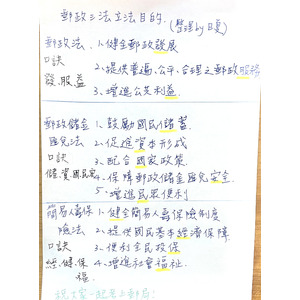 郵政三法立法目的. (整理by日夏)
郵政法、 1.健全郵政發展
口訣 2、提供普遍、公平、合理之郵政服務
發.服.益 3、增進公共利益.
郵政儲金 1、鼓勵國民儲蓄.
匯兌法 2、促進資本形成
口訣 3、配合國家政策.
儲.資.國.民.安 4、保障郵政儲金匯兌安全.
5、增進民眾便利
簡易人壽保 1、健全簡易人壽保險制度
險法 2、提供國民基本經濟保障
口訣 3、便利全民投保
經.健.保 4、增進社會福祉.
福.
祝大家一起考上郵局!